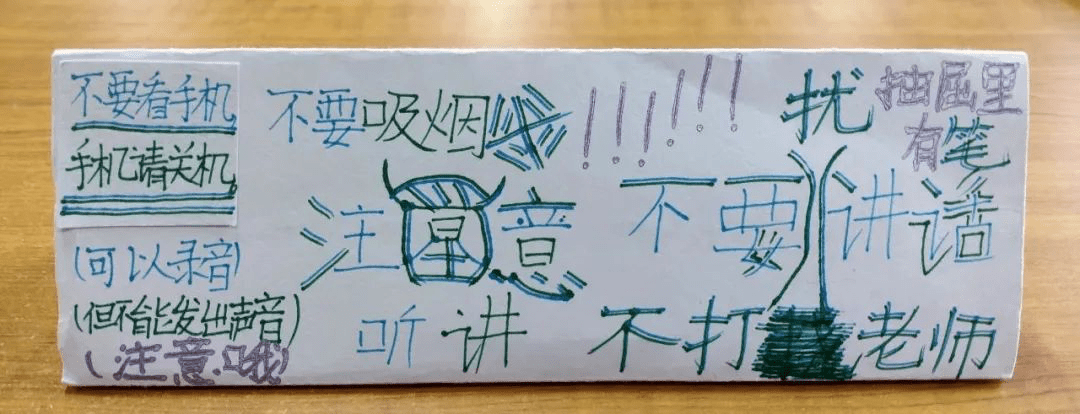 不要看手机
手机请关机。
(可以录音)
(但不能发出声音)
(注意哦)
不要吸烟!!!!!!
注意
听讲
抽屉里
有笔
不要讲话
不打扰老师